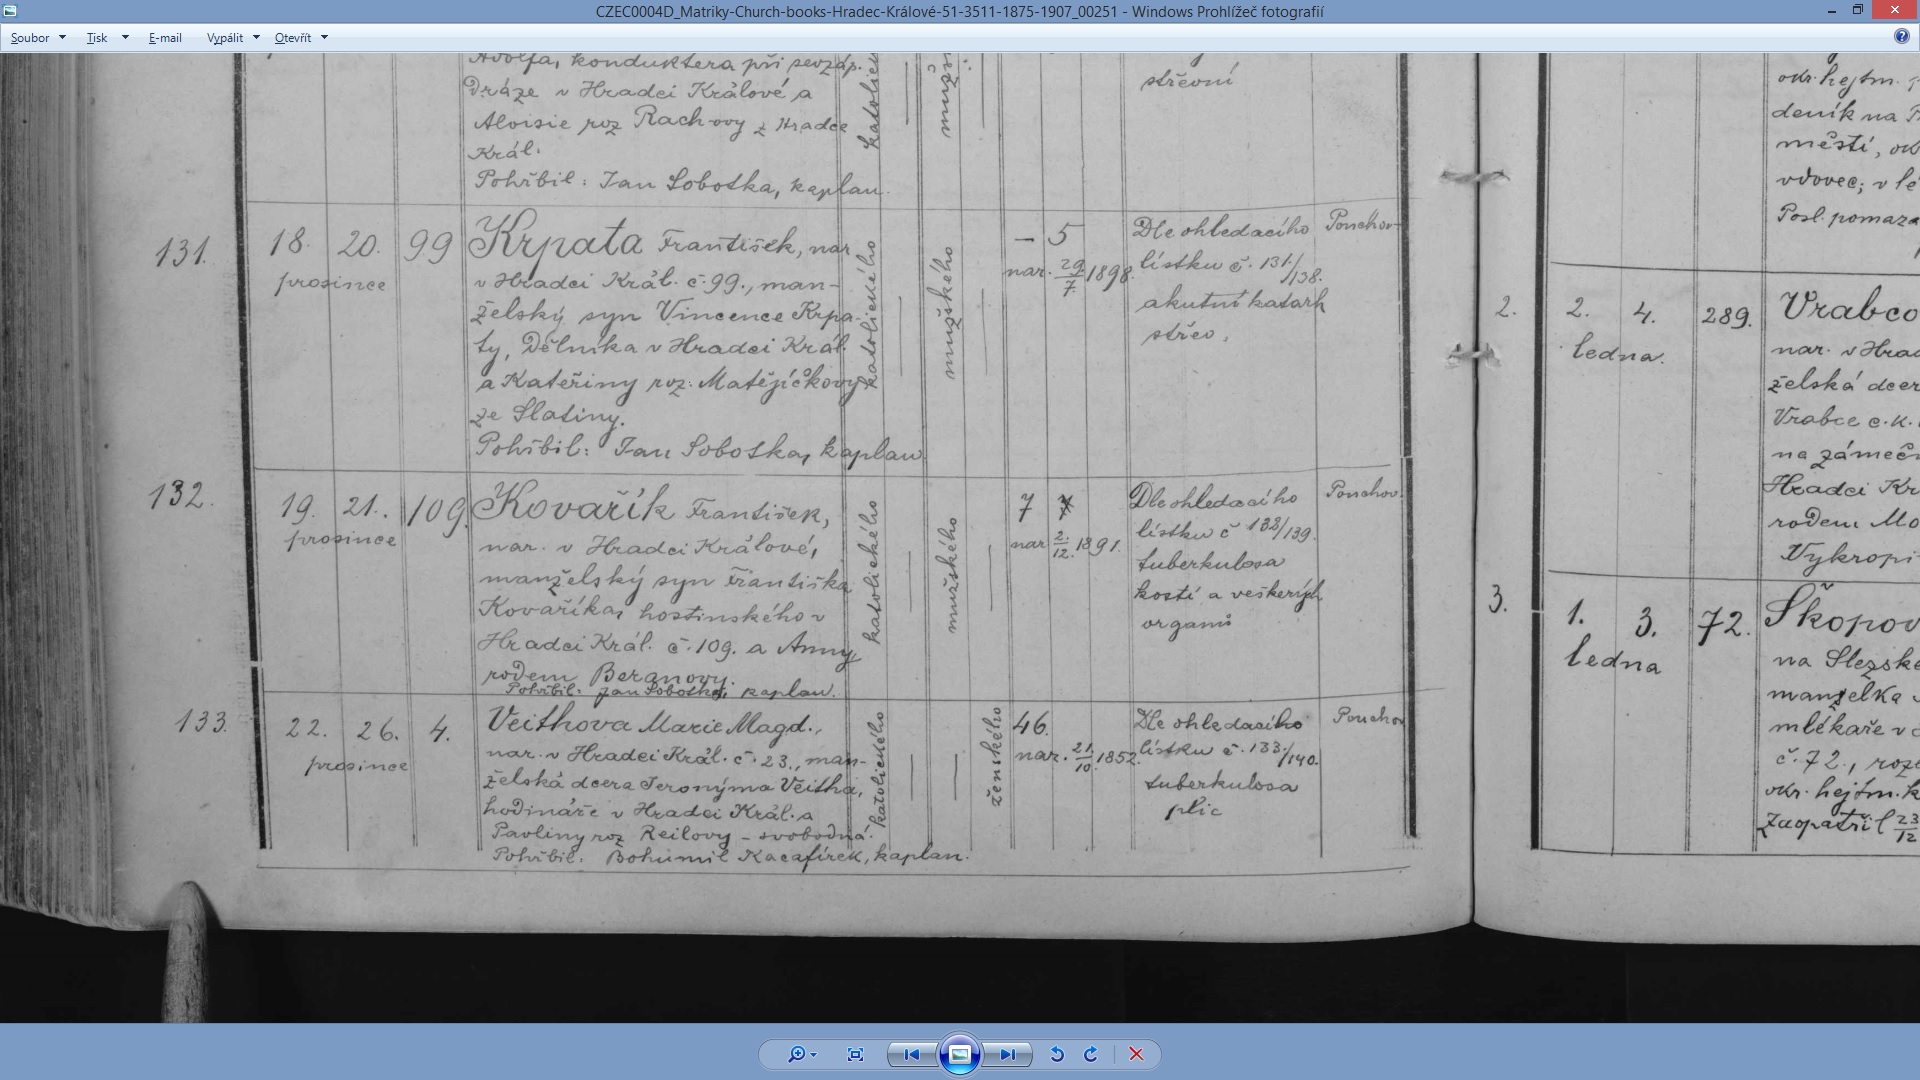 CZEC0004D_Matriky-Church-books-Hradec-Králové-51-3511-1875-1907_00251 - Windows Prohlížeč fotografií
Soubor Tisk E-mail Vypálit Otevřít
Adolfa, konduktera při sevzáp.
Dráze v Hradci Králové a
Aloisie roz Rachovy z Hradce
Král.
Pohřbil: Jan Sobotka, kaplan.
katolického
mužského
střevní
131. 18. 20. 99
prosince
Krpata František, nar
v Hradci Král. č. 99., man-
želský syn Vincence Krpa-
ty, Dělníka v Hradci Král.
a Kateřiny roz. Matějíčkovy
ze Slatiny.
Pohřbil: Jan Sobotka, kaplan
katolického
mužského
– 5
nar. 29/7. 1898.
Dle ohledacího
lístku č. 131./138.
akutní katarh
střev.
Pouchov
132. 19. 21. 109.
prosince
Kovařík František,
nar. v Hradci Králové,
manželský syn Františka
Kovaříka, hostinského v
Hradci Král. č. 109. a Anny
rodem Beranovy.
Pohřbil: Jan Sobotka, kaplan.
katolického
mužského
7
nar 2./12. 1891.
Dle ohledacího
lístku č 132/139.
tuberkulosa
kostí a veškerých
orgamů
Pouchov.
133. 22. 26. 4.
prosince
Veithova Marie Magd.,
nar. v Hradci Král. č. 23., man-
želská dcera Jeronýma Veitha,
hodináře v Hradci Král. a
Pavliny roz Reilovy – svobodná.
Pohřbil: Bohumil Kacafírek, kaplan.
katolického
ženského
46.
nar. 21/10. 1852.
Dle ohledacího
lístku č. 133./140.
tuberkulosa
plic
Pouchov
okr. hejtm.
deník na
městí, ok
vdovec; v lé
Posl. pomaza
2. 2. 4. 289.
ledna.
Vrabco
nar. v Hrad
želská dcer
Vrabce c. k.
na zámeč
Hradci Kr
rodem Mo
Vykropi
3. 1. 3. 72.
ledna
Škopov
na Slezské
manželka
mlékaře v
č. 72., roze
okr. hejtm. K
Zaopatřil 23/12